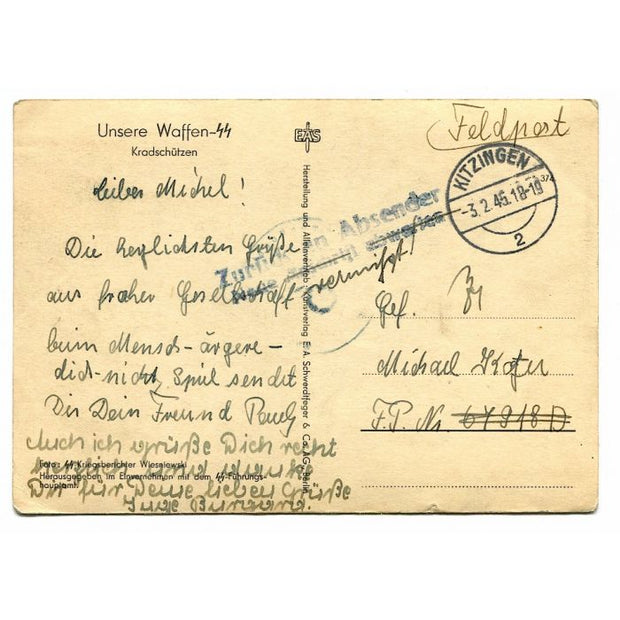 Unsere Waffen-SS
Kradschützen
EAS
Feldpost
KITZINGEN
-3.2.45.18-19
2
Lieber Michel!
Die herzlichsten Grüße
aus froher Gesellschaft
beim Mensch-ärgere-
dich-nicht Spiel sendet
Dir Dein Freund
Auch ich grüße Dich recht
und danke
Dir für Deine lieben Grüße
Foto: SS-Kriegsberichter Wiesniewski
Herausgegeben im Einvernehmen mit dem SS-Führungs-
hauptamt.
Herstellung und Alleinvertrieb Kunstverlag E. A. Schwerdtfeger & Co. AG., Berlin
Zurück an Absender
Neue Anschrift abwarten
vermißt!
Gef.
Michael Kofer
F.P. Nr. 67918 D